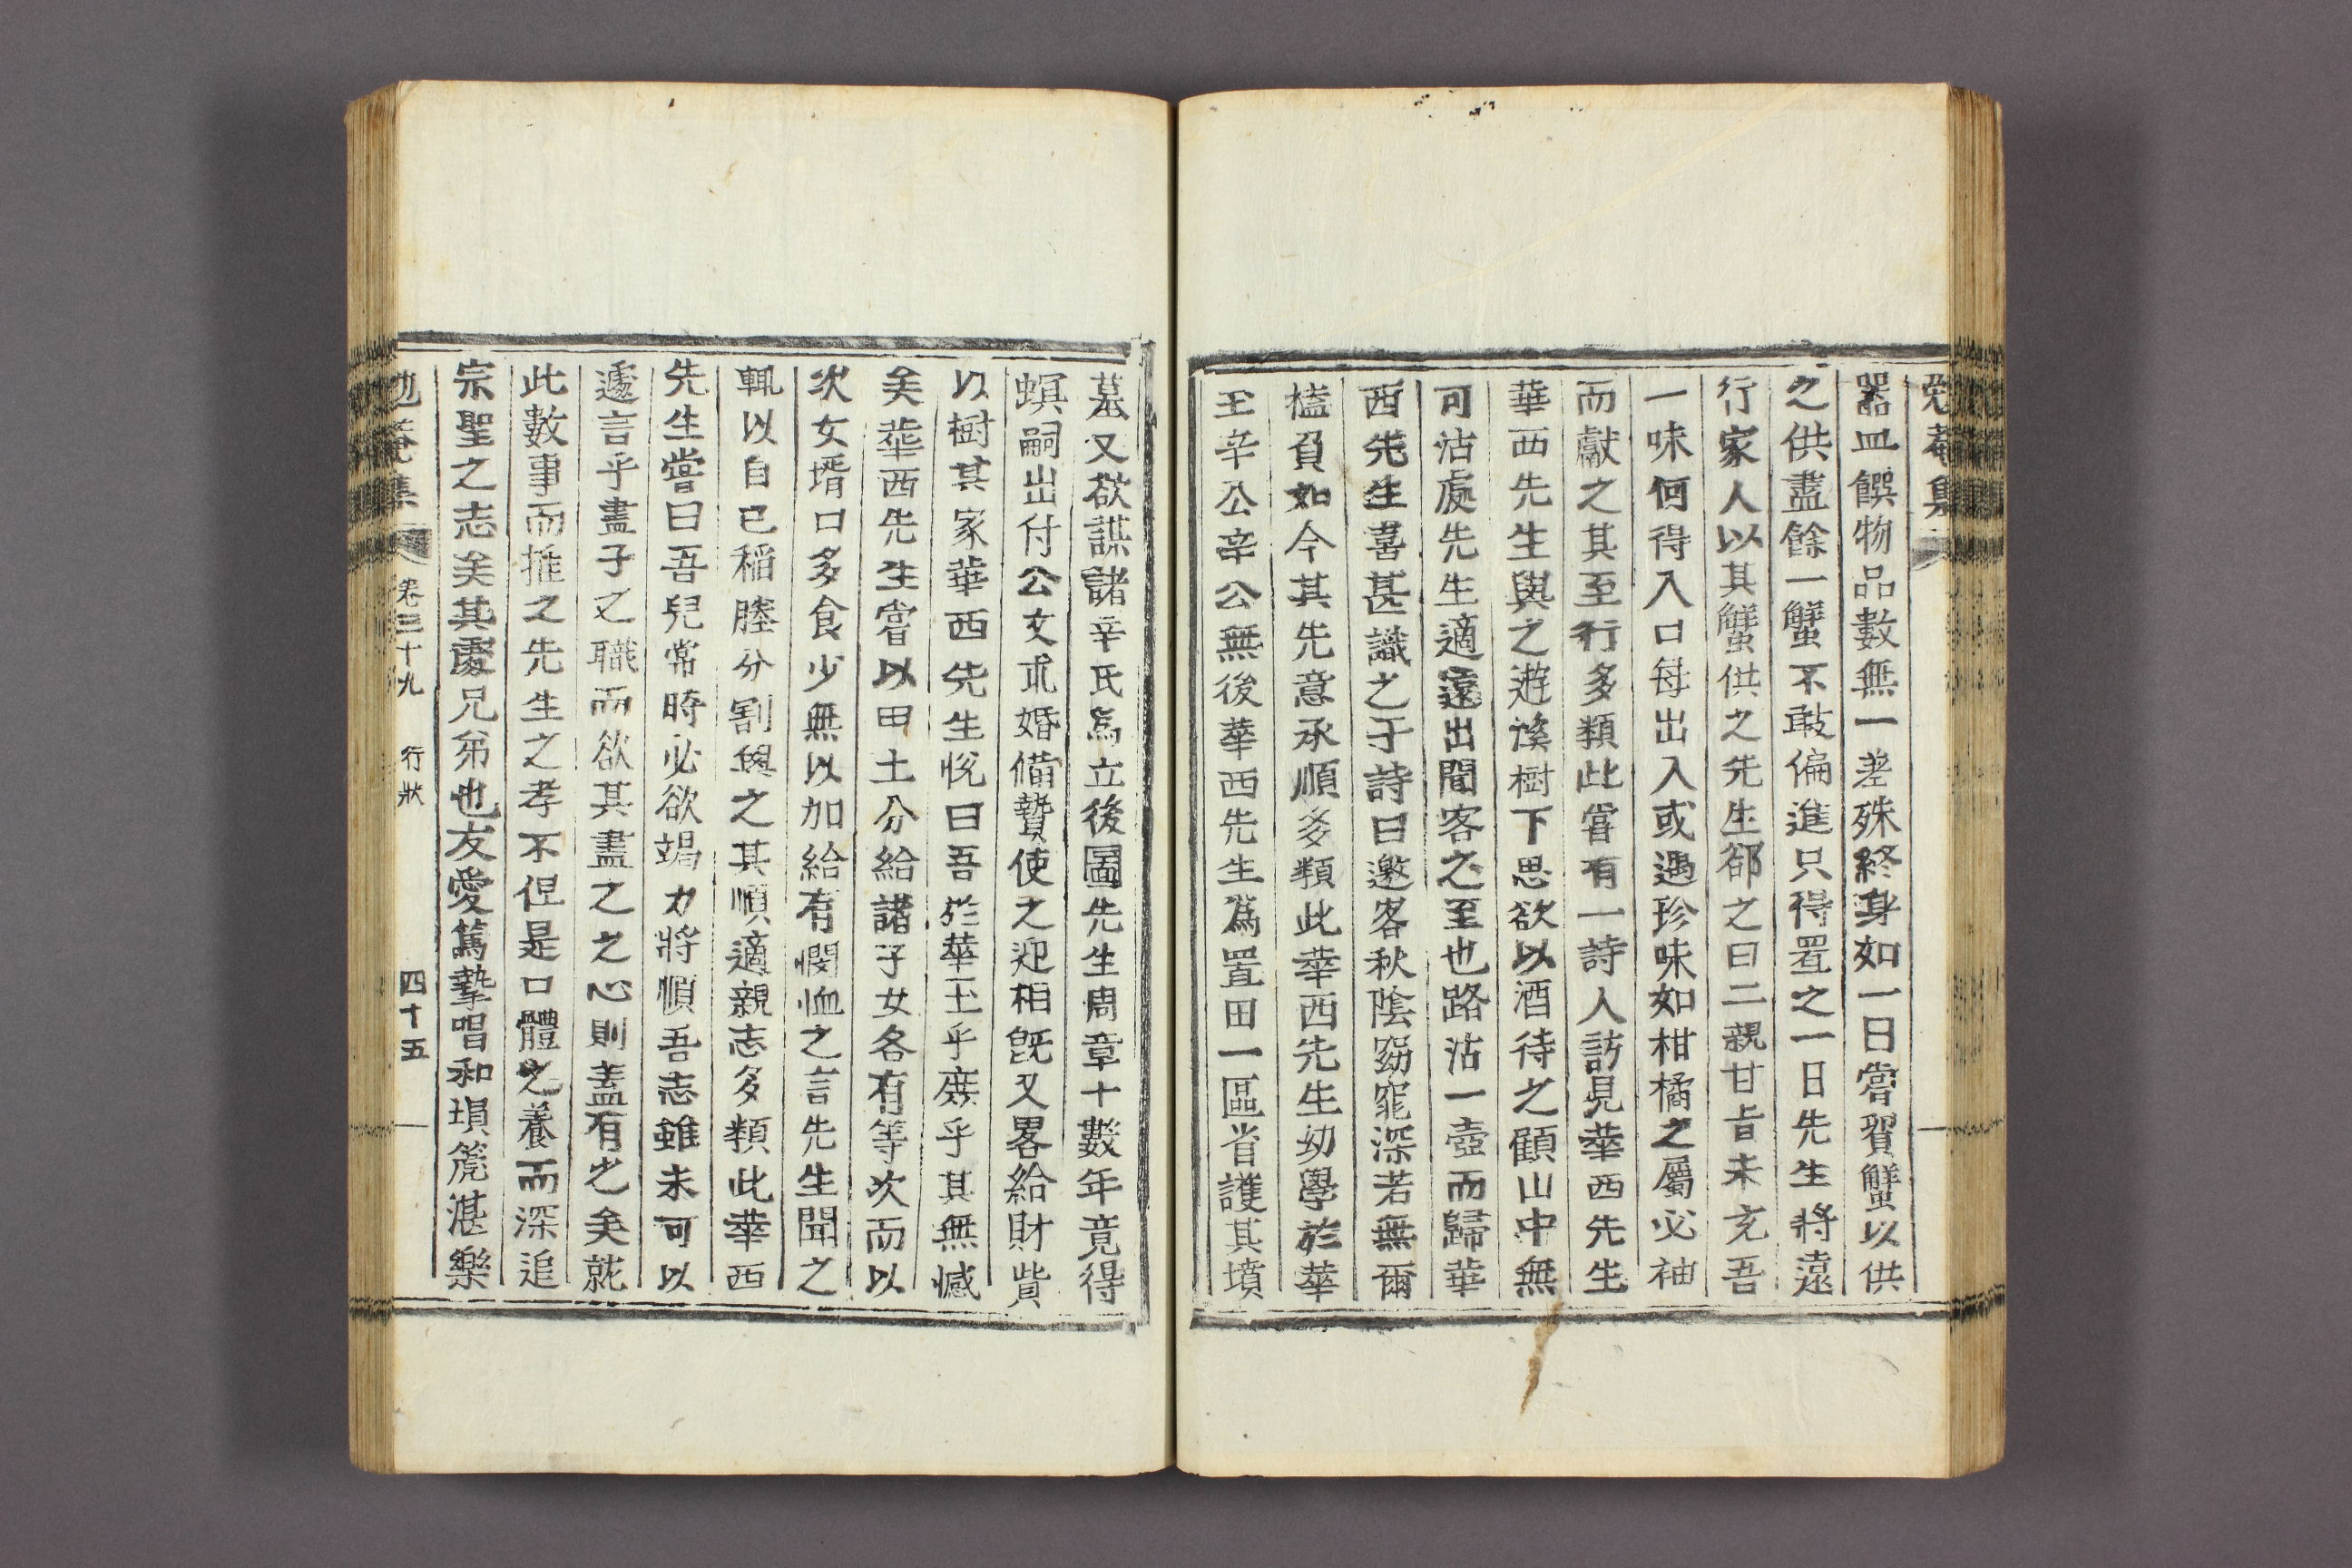 勉菴集
器皿饌物品數無一差殊終身如一日嘗買蟹以供
之供盡餘一蟹不敢偏進只得置之一日先生將遠
行家人以其蟹供之先生郤之曰二親甘旨未充吾
一味何得入口每出入或遇珍味如柑橘之屬必袖
而獻之其至行多類此嘗有一詩人訪見華西先生
華西先生與之遊溪樹下思欲以酒待之顧山中無
可沽處先生適還出聞客之至也路沽一壺而歸華
西先生喜甚識之于詩曰邀客秋陰窈窕深若無爾
榼負如今其先意承順多類此華西先生幼學於華
玉辛公辛公無後華西先生爲置田一區省護其墳
墓又欲謀諸辛氏爲立後圖先生周章十數年竟得
螟嗣出付公文求婚備贄使之迎相旣又畧給財貲
以樹其家華西先生悅曰吾於華玉乎庶乎其無憾
矣華西先生嘗以田土分給諸子女各有等次而以
次女壻口多食少無以加給有憫恤之言先生聞之
輒以自己稻塍分割與之其順適親志多類此華西
先生嘗曰吾兒常時必欲竭力將順吾志雖未可以
遽言乎盡子之職而欲其盡之之心則盖有之矣就
此數事而推之先生之孝不但是口體之養而深追
宗聖之志矣其處兄弟也友愛篤摯唱和塤篪湛樂
勉菴集 卷三十九 行狀 四十五